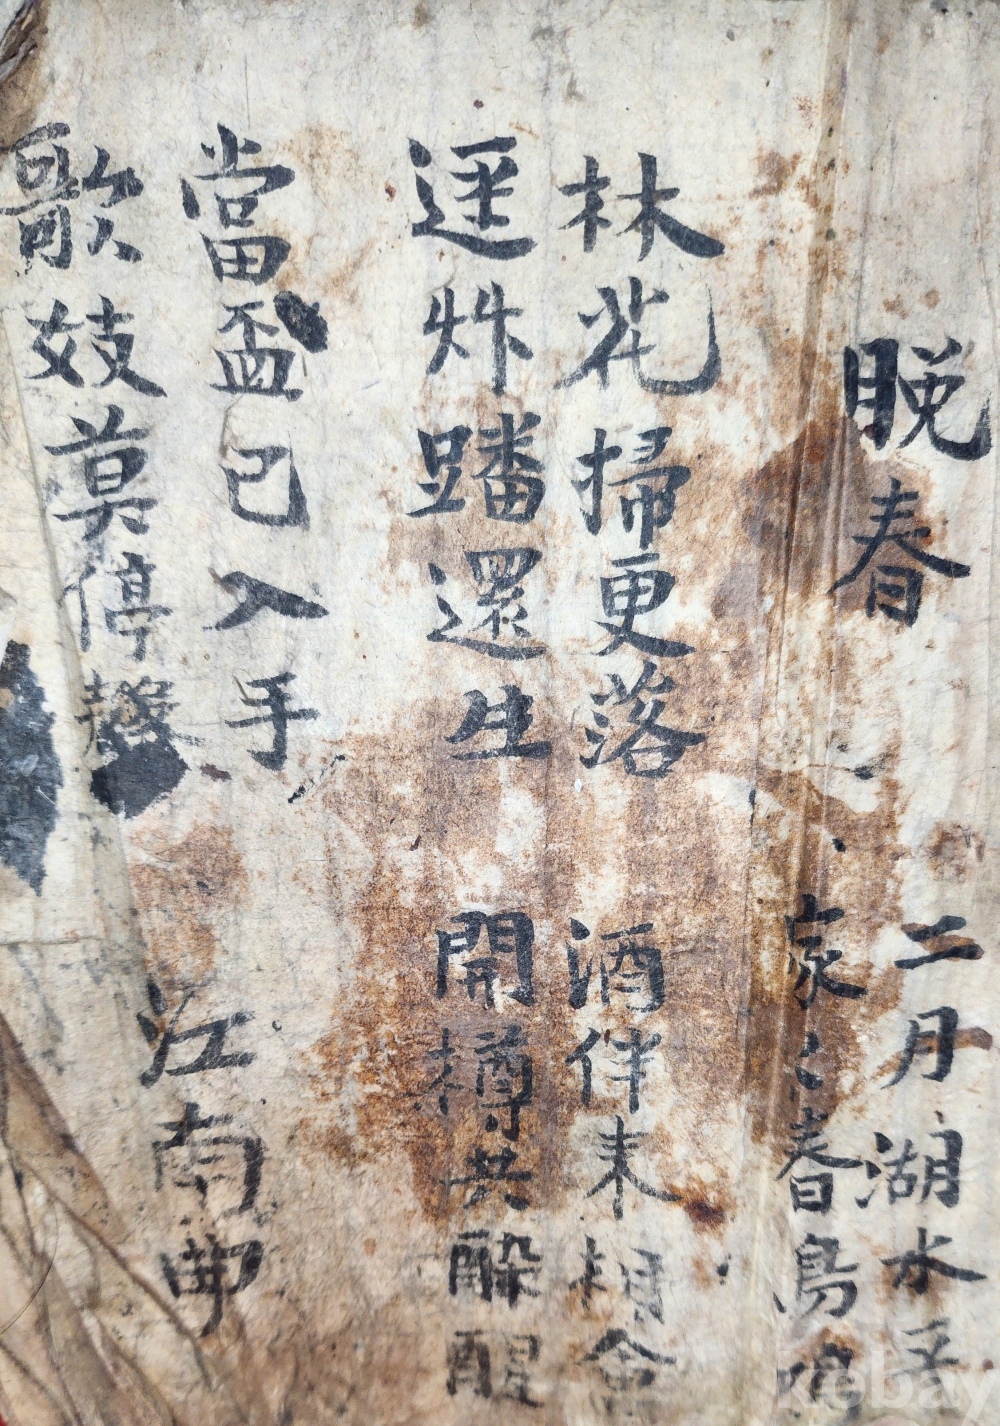 晚春
二月湖水
家〻春鳥
林花掃更落 酒伴来相命
逕艸蹯還生 開樽共酔醒
當盃已入手
歌妓莫停聲
江南曲
kebay